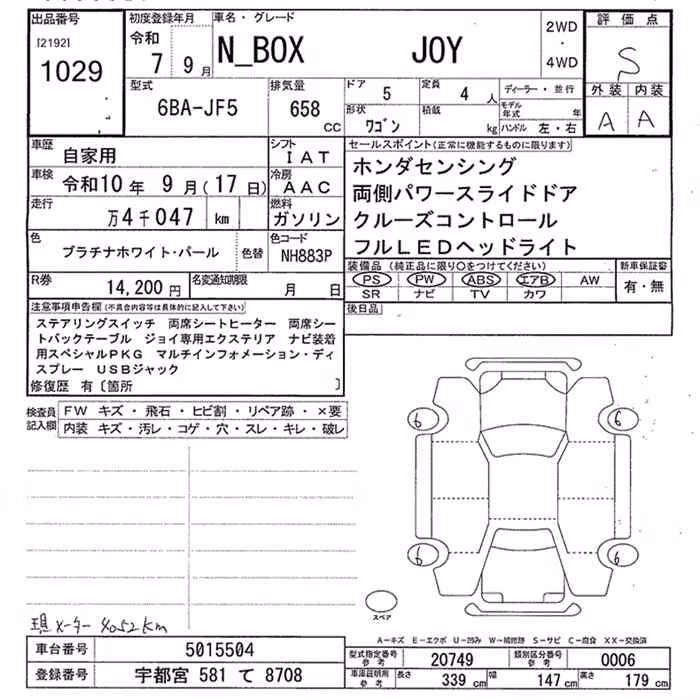 出品番号 初度登録年月 車名・グレード 2WD 評価点
[2192] 令和 N_BOX JOY ・ S
1029 7 9月 4WD
型式 排気量 ドア 5 定員 4人 ディーラー・並行 外装 内装
6BA-JF5 658 CC 形状 ワゴン 積載 kg モデル年式 年 A A
ハンドル 左・右
車歴 自家用 シフト IAT セールスポイント(正常に機能するものに限ります)
車検 令和10年 9月(17日) 冷房 AAC ホンダセンシング
走行 万4千047 km 燃料 ガソリン 両側パワースライドドア
色 プラチナホワイト・パール 色替 色コード NH883P クルーズコントロール
フルLEDヘッドライト
R券 14,200円 名変通知期限 月 日 装備品 (純正品に限り○をつけてください) 新車保証書
PS PW ABS エアB AW 有・無
SR ナビ TV カワ
注意事項申告欄(不具合内容等は具体的に記入して下さい) 後日品
ステアリングスイッチ 両席シートヒーター 両席シー
トバックテーブル ジョイ専用エクステリア ナビ装着
用スペシャルPKG マルチインフォメーション・ディ
スプレー USBジャック
修復歴 有〔箇所 〕
検査員記入欄 FW キズ・飛石・ヒビ割・リペア跡・×要
内装 キズ・汚レ・コゲ・穴・スレ・キレ・破レ
6 6
6 6
スペア
現メーター 4052km
A―キズ E―エクボ U―凹み W―補修跡 S―サビ C―腐食 XX―交換済
車台番号 5015504 型式指定番号 参考 20749 類別区分番号 参考 0006
登録番号 宇都宮 581 て 8708 車庫証明用 参考 長さ 339cm 幅 147cm 高さ 179cm